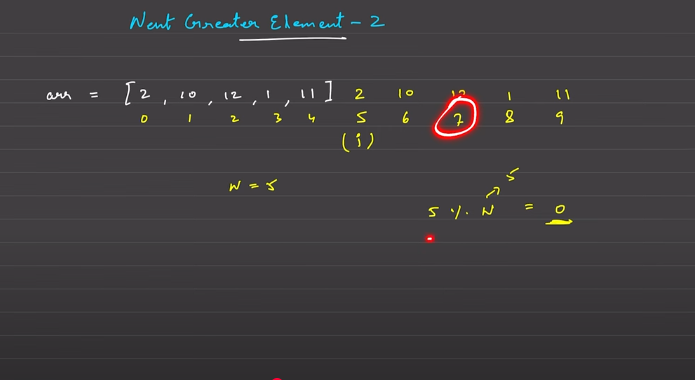 Next Greater Element - 2
arr = [2, 10, 12, 1, 11] 2 10 12 1 11
0 1 2 3 4 5 6 7 8 9
(i)
N = 5
5
5 % N = 0